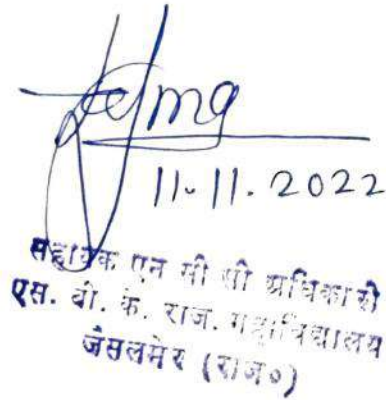 11.11.2022
सहायक एन सी सी अधिकारी
एस. बी. के. राज. महाविद्यालय
जैसलमेर (राज०)